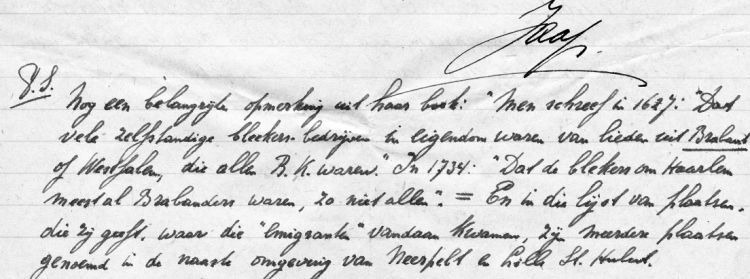 Jaap.
P.S.
Nog een belangrijke opmerking uit haar boek: "Men schreef in 1627: "Dat
vele zelfstandige bleekers-bedrijven in eigendom waren van lieden uit Brabant
of Westfalen, die allen R.K. waren." In 1734: "Dat de blekers om Haarlem
meestal Brabanders waren, zo niet allen". = En in die lijst van plaatsen,
die zij geeft, waar die "emigranten" vandaan kwamen, zijn meerdere plaatsen
genoemd in de naaste omgeving van Neerpelt en Lille St. Hubert.